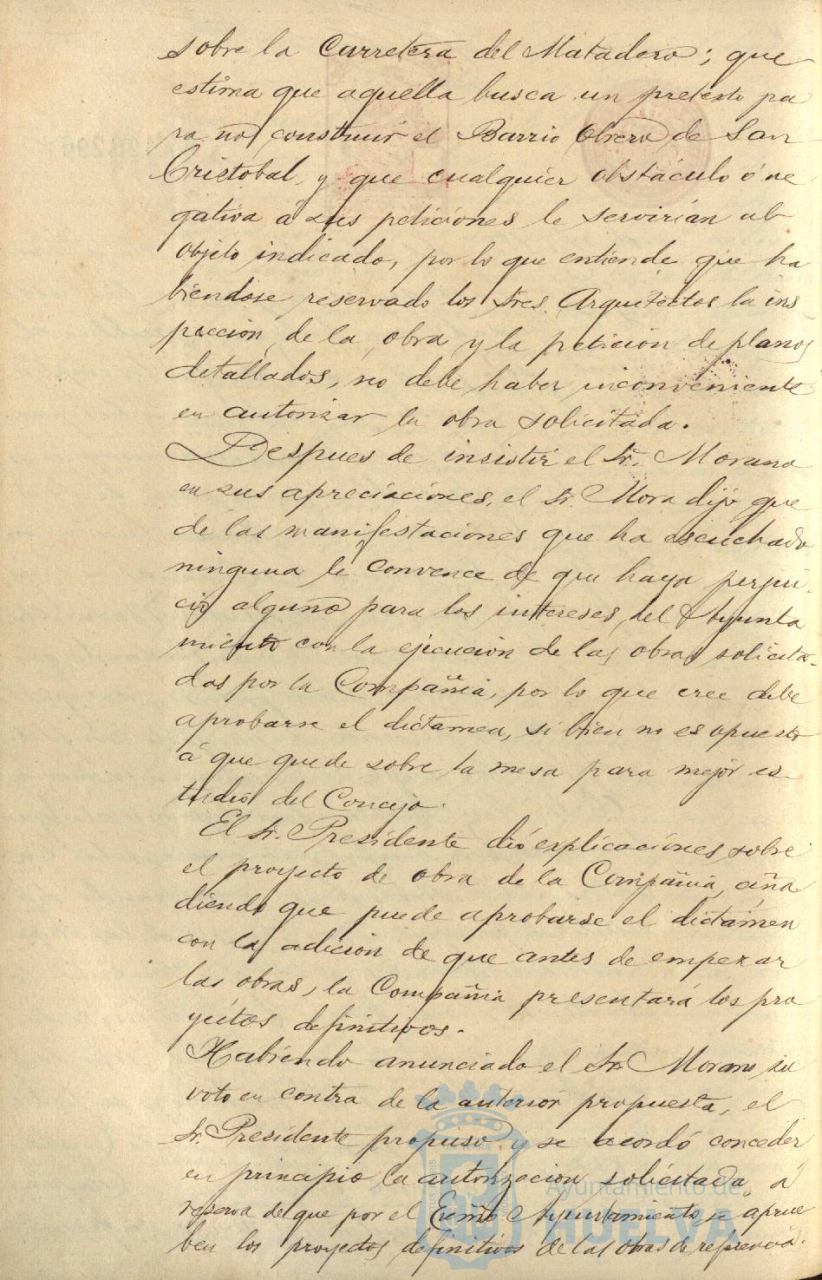 sobre la Carretera del Matadero; que
estima que aquella busca un pretexto pa
ra no construir el Barrio Obrero de San
Cristobal, y que cualquier obstáculo ó ne
gativa á sus peticiones le servirían al
objeto indicado, por lo que entiende que ha
biendose reservado los Sres. Arquitectos la ins
pección de la obra y la petición de planos
detallados, no debe haber inconveniente
en autorizar la obra solicitada.
Despues de insistir el Sr. Morano
en sus apreciaciones, el Sr. Mora dijo que
de las manifestaciones que ha escuchado
ninguna le convence de que haya perjui-
cio alguno para los intereses del Ayunta
miento con la ejecución de las obras solicita-
das por la Compañia, por lo que cree debe
aprobarse el dictamen, si bien no es opuesto
á que quede sobre la mesa para mejor es-
tudio del Concejo.
El Sr. Presidente dió explicaciones sobre
el proyecto de obra de la Compañia, aña
diendo que puede aprobarse el dictámen
con la adición de que antes de empezar
las obras, la Compañia presentará los pro
yectos definitivos.
Habiendo anunciado el Sr. Morano su
voto en contra de la anterior propuesta, el
Sr. Presidente propuso y se acordó conceder
en principio la autorización solicitada á
reserva de que por el Excmo Ayuntamiento se aprue
ben los proyectos definitivos de las obras de referencia.
Ayuntamiento de
HUELVA